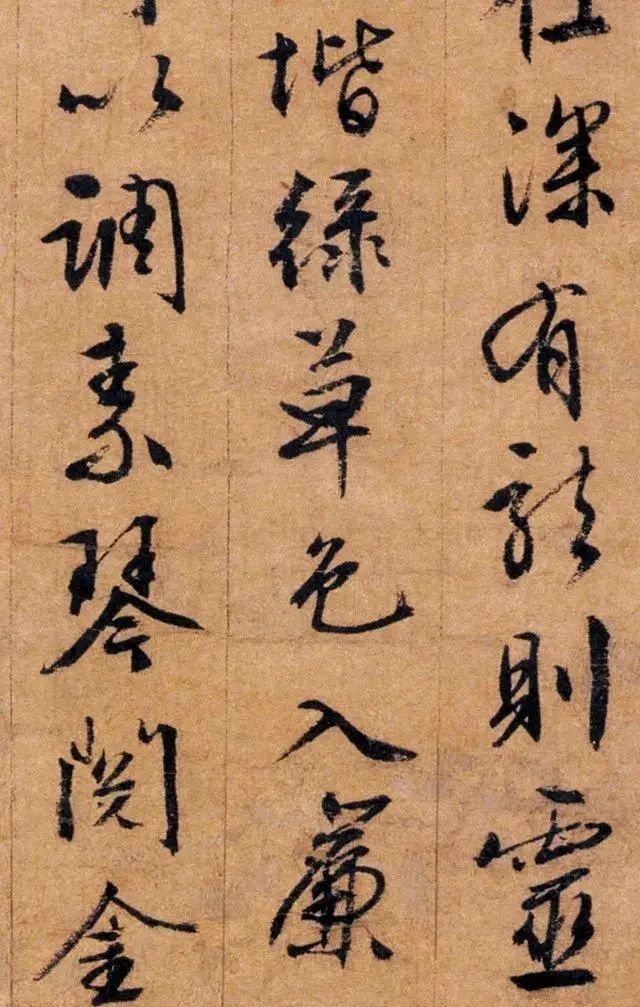 在深有龍則靈
堦綠草色入簾
以調素琴閱金